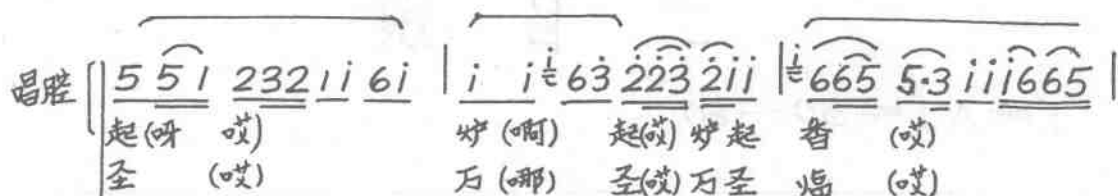 唱腔 5 51 232 1i 6i | i i i 63̇ 2̇2̇3̇ 2̇ii | i 665 5·3 iii665 |
起(呀 哎) 炉(啊) 起(哎)炉起 香 (哎)
圣 (哎) 万(哪) 圣(哎)万圣 (哎)